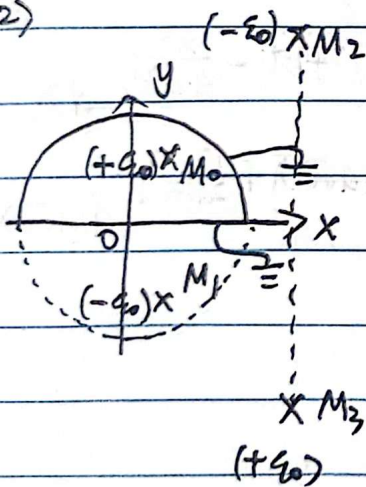 2)
(-q₀) × M₂
y
(+q₀) × M₀
O
X
M₁
(-q₀) ×
× M₃
(+q₀)